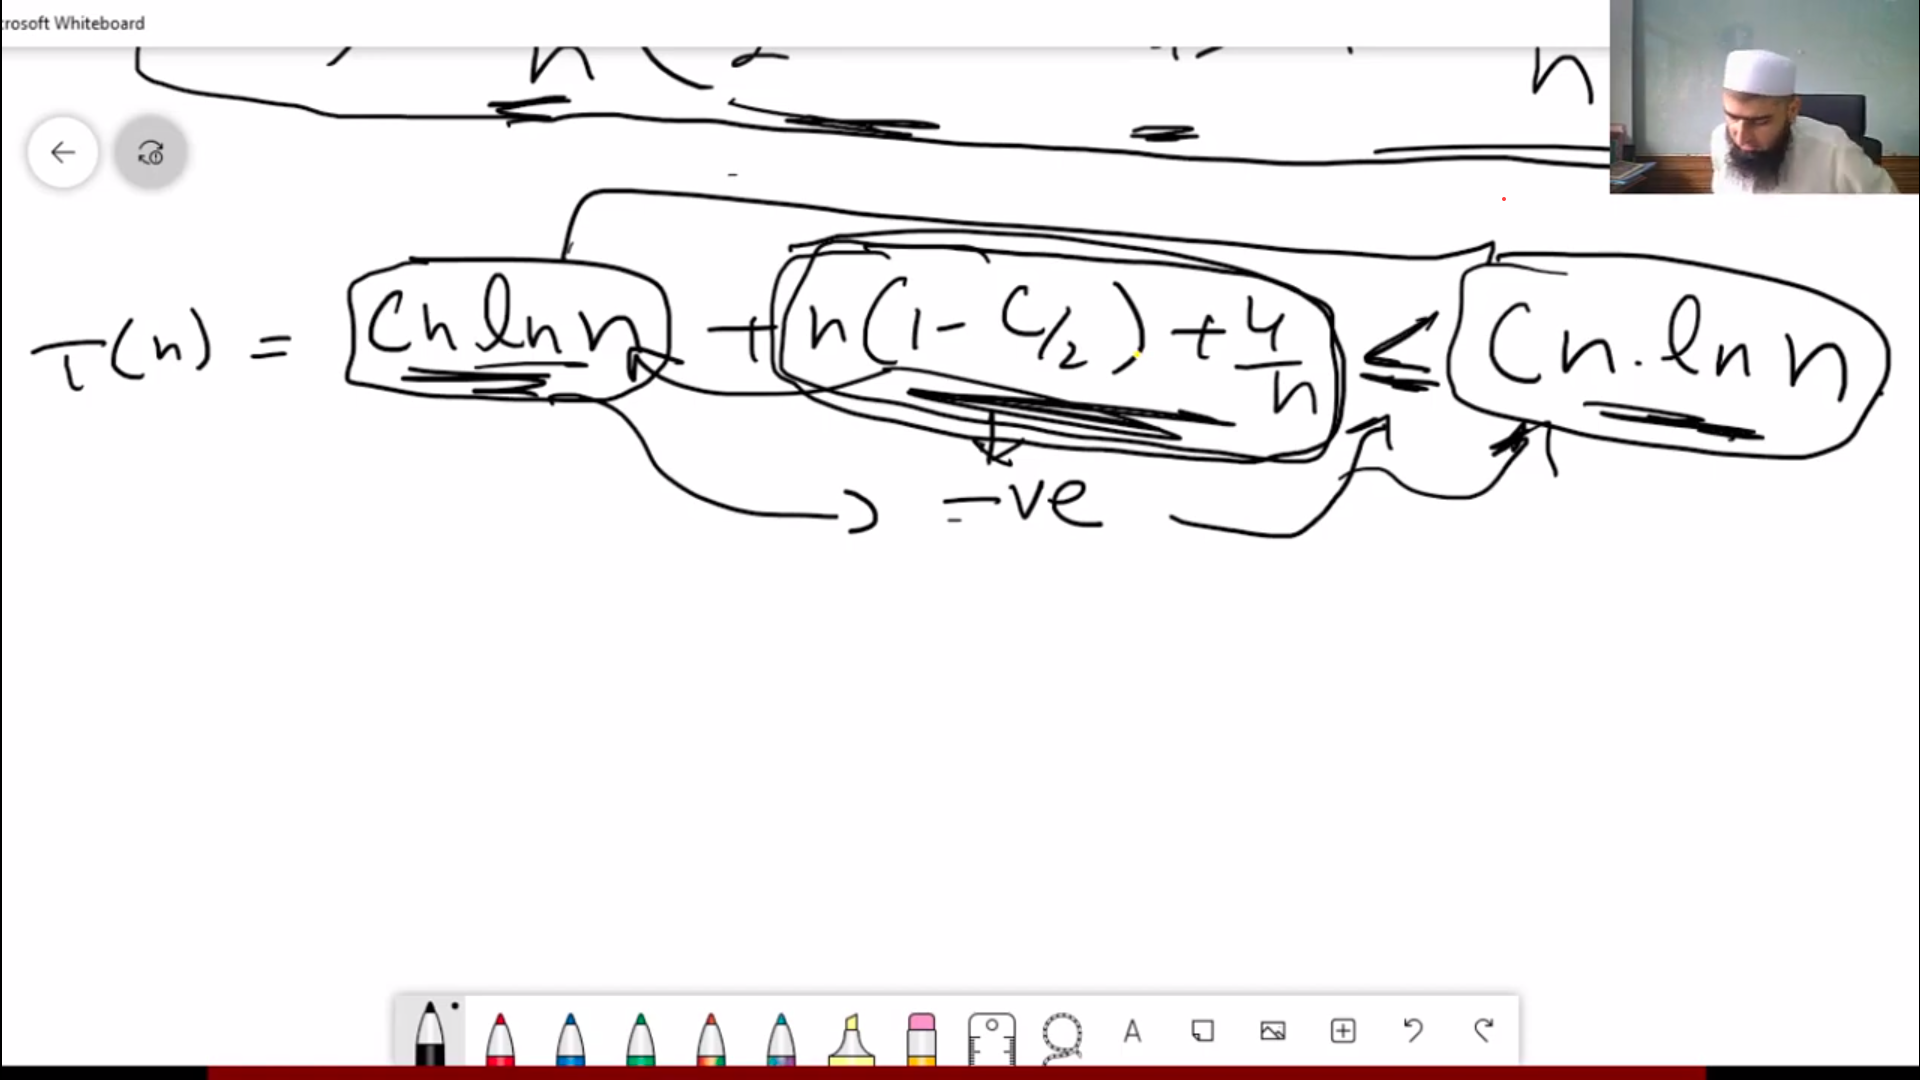 crosoft Whiteboard
n ( 2 n
T(n) = Cn ln n + n(1 - C/2) + 4/n ≤ Cn. ln n
-ve
A